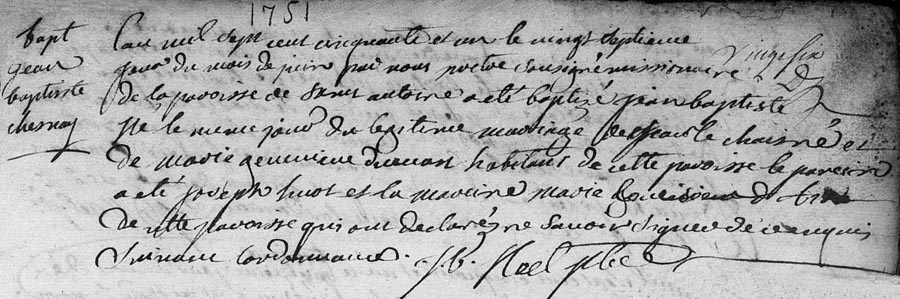 1751
bapt
jean
baptiste
chesnay
Lan mil Sept cent cinquante et un le vingt Septieme
jour du mois de juin par nous pretre Sousigné missionaire
de la paroisse de Saint antoine a eté baptizé jean baptiste
Né le meme jour du legitime mariage de le chainé et
de marie genevieve habitans de cette paroisse le parein
a eté joseph huot et la mareine marie
de cette paroisse qui ont declarés ne Savoir Signer de ce enquis
Suivant Lordonnance. j. b. Noel ptre